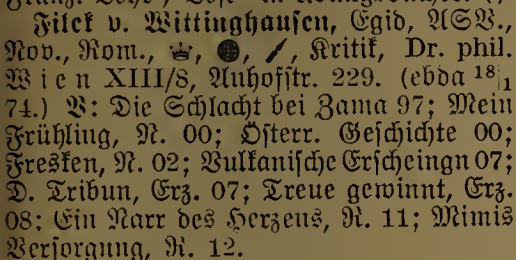 Filek v. Wittinghausen, Egid, ASV.,
Nov., Rom., Kritik, Dr. phil.
Wien XIII/8, Auhofstr. 229. (ebda 18/1
74.) V: Die Schlacht bei Zama 97; Mein
Frühling, N. 00; Österr. Geschichte 00;
Fresken, N. 02; Vulkanische Erscheingn 07;
D. Tribun, Erz. 07; Treue gewinnt, Erz.
08; Ein Narr des Herzens, R. 11; Mimis
Versorgung, R. 12.